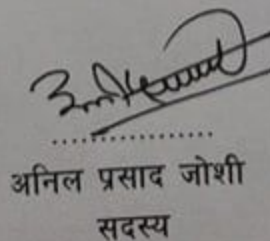 ..................
अनिल प्रसाद जोशी
सदस्य